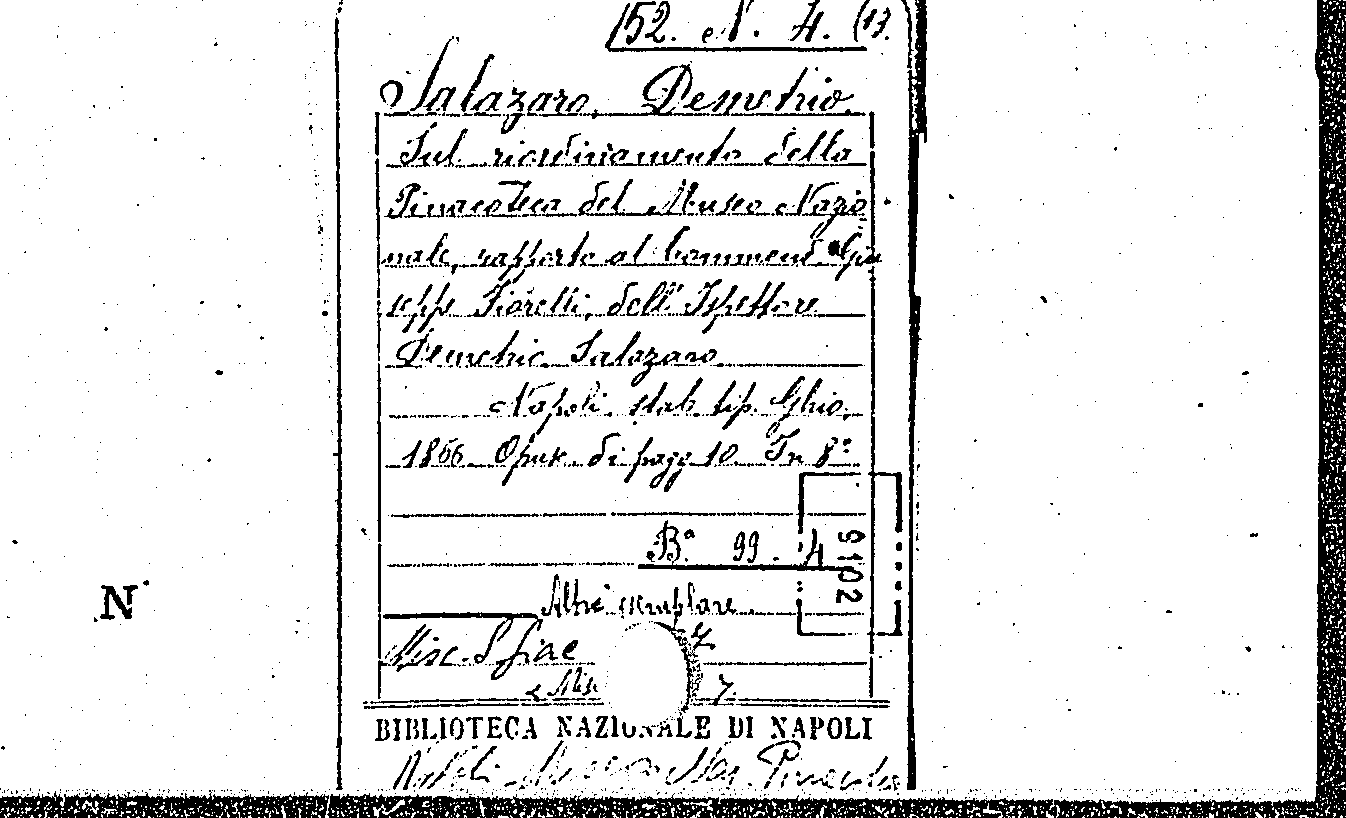 152. N. 4. (13.
Salazaro, Demetrio.
Sul riordinamento della
Pinacoteca del Museo Nazio
nale, rapporto al Commend. Giu
seppe Fiorelli, dell' Ispettore
Demetrio Salazaro
Napoli, stab. tip. Ghio,
1866. Opusc. di pagg. 10. In 8º
Bª 99. 4
9102
Altro esemplare.
Misc.
N
BIBLIOTECA NAZIONALE DI NAPOLI
Napoli Museo Naz. Pinacoteca